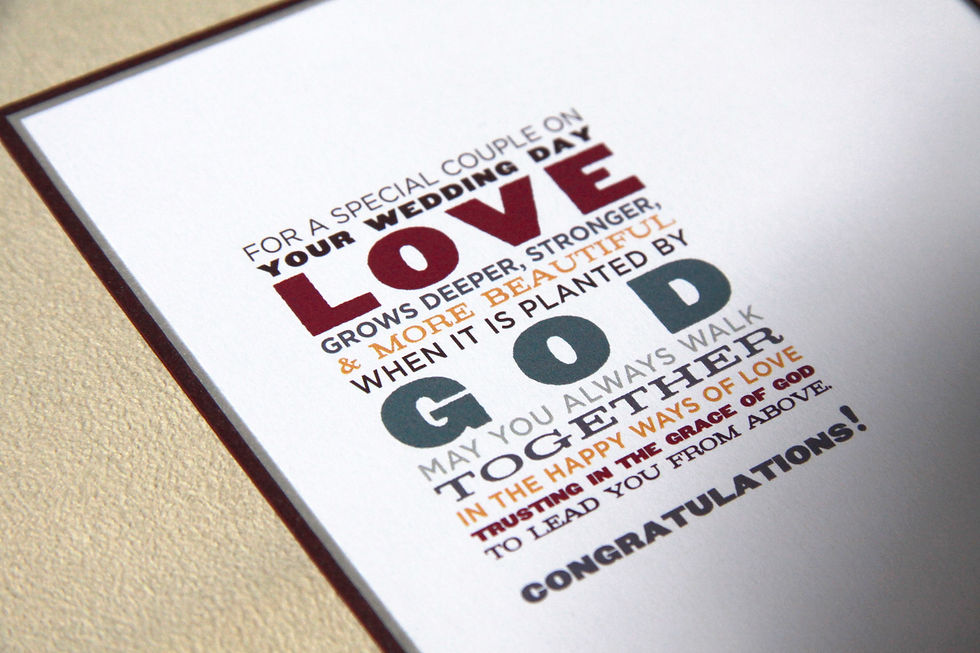 FOR A SPECIAL COUPLE ON
YOUR WEDDING DAY
LOVE
GROWS DEEPER, STRONGER,
& MORE BEAUTIFUL
WHEN IT IS PLANTED BY
GOD
MAY YOU ALWAYS WALK
TOGETHER
IN THE HAPPY WAYS OF LOVE
TRUSTING IN THE GRACE OF GOD
TO LEAD YOU FROM ABOVE.
CONGRATULATIONS!